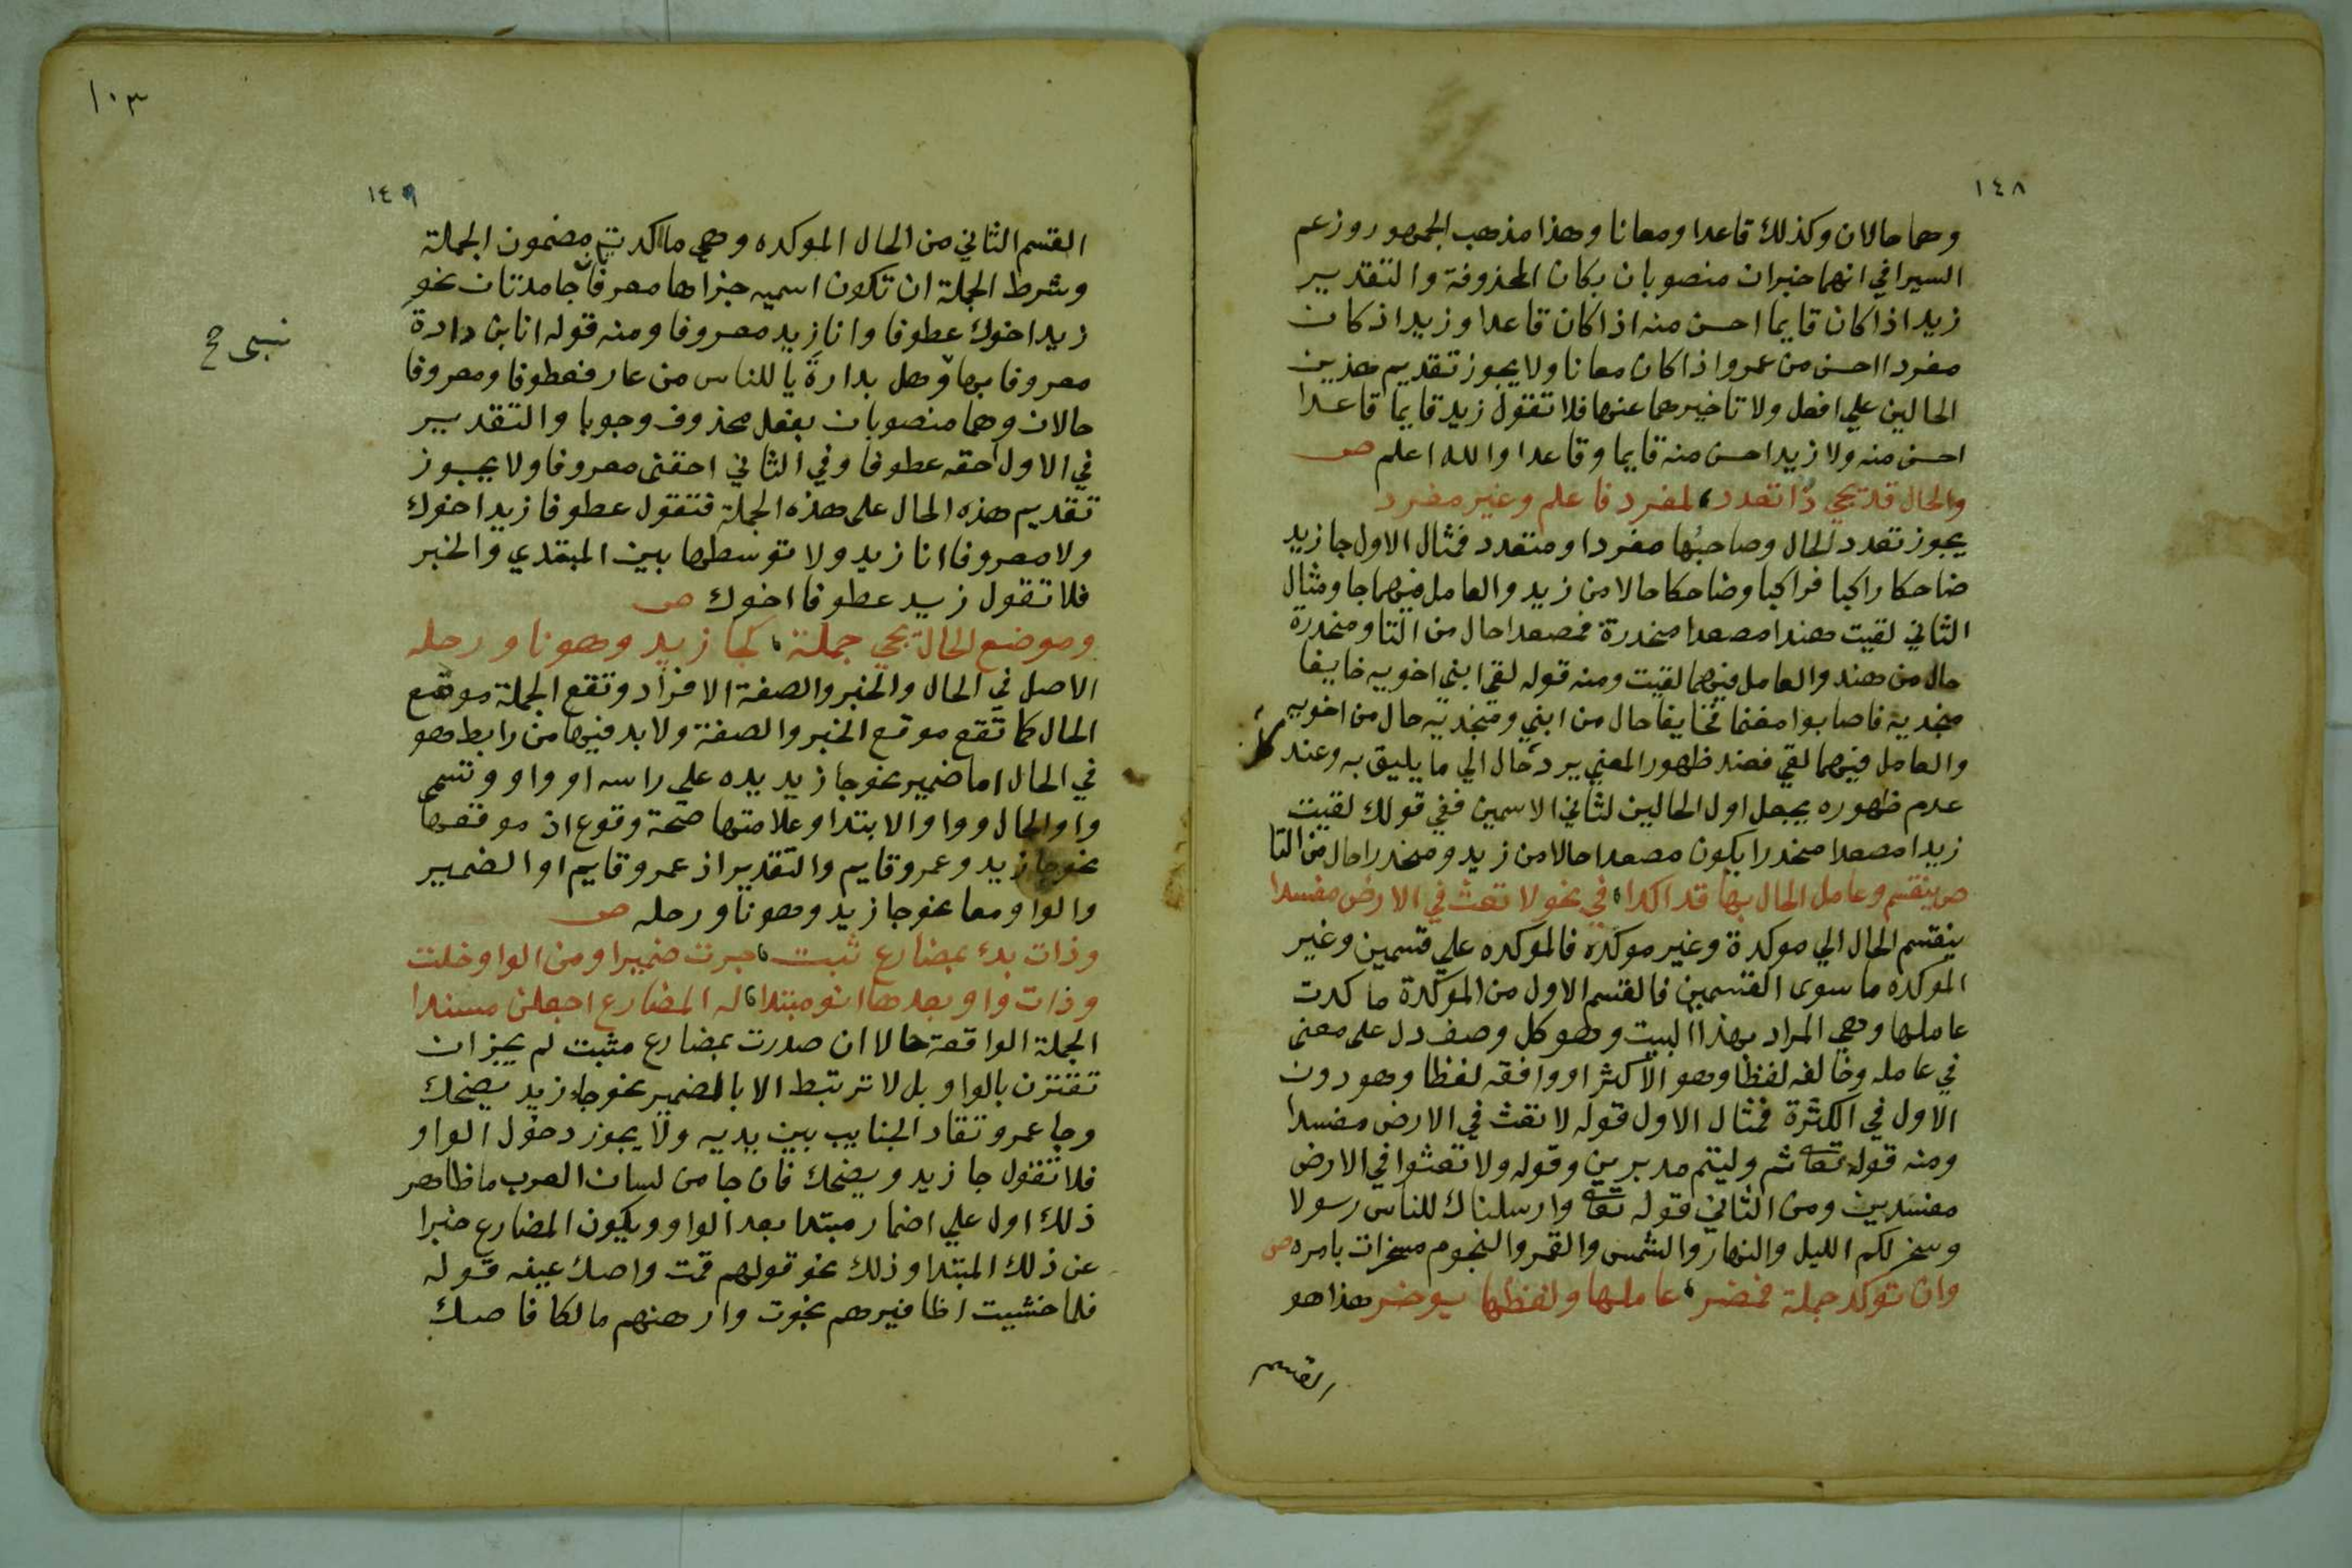 ١٤٨
وهما حالان وكذلك قاعدا ومعانا وهذا مذهب الجمهور وزعم
السيرافي انهما خبران منصوبان بكان المحذوفة والتقدير
زيد اذا كان قايما احسن منه اذا كان قاعدا وزيد اذ كان
مفردا احسن من عمرو اذا كان معانا ولا يجوز تقديم هذين
الحالين علي افعل ولا تاخيرهما عنها فلا تقول زيد قايما قاعدا
احسن منه ولا زيد احسن منه قايما وقاعدا والله اعلم ص
والحال قد يجي ذا تعدد لمفرد فاعلم وغير مفرد
يجوز تعدد الحال وصاحبها مفردا ومتعدد فمثال الاول جا زيد
ضاحكا راكبا فراكبا وضاحكا حالا من زيد والعامل فيهما جا ومثال
الثاني لقيت هندا مصعدا منحدرة فمصعدا حال من التا ومنحدرة
حال من هند والعامل فيهما لقيت ومنه قوله لقي ابني اخويه خايفا
منجديه فاصابوا مغنما فخايفا حال من ابني ومنجديه حال من اخويه
والعامل فيهما لقي فعند ظهور المعني يرد حال الي ما يليق به وعند
عدم ظهوره يجعل اول الحالين لثاني الاسمين ففي قولك لقيت
زيدا مصعدا منحدرا يكون مصعدا حالا من زيد ومنحدرا حال من التا
ص ينقسم وعامل الحال بها قد اكدا في نحو لا تعث في الارض مفسدا
ينقسم الحال الي موكدة وغير موكده فالموكده علي قسمين وغير
الموكده ما سوى القسمين فالقسم الاول من الموكدة ما كدت
عاملها وهي المراد بهذا البيت وهو كل وصف دل على معنى
في عامله وخالفه لفظا وهو الاكثر او وافقه لفظا وهو دون
الاول في الكثرة فمثال الاول قوله لا تعث في الارض مفسدا
ومنه قوله تعا ثم وليتم مدبرين وقوله ولا تعثوا في الارض
مفسدين ومن الثاني قوله تعا وارسلناك للناس رسولا
وسخر لكم الليل والنهار والشمس والقمر والنجوم مسخرات بامره ص
وان توكد جملة فمضمر عاملها ولفظها يوخر هذا هو
القسم
١٠٣
١٤٩
القسم الثاني من الحال الموكده وهي ما اكدت مضمون الجملة
وشرط الجملة ان تكون اسميه جزاها معرفان جامدتان نحو
زيد اخوك عطوفا وانا زيد معروفا ومنه قوله انا بن دارة
معروفا بها وهل بدارة يا للناس من عار فعطوفا ومعروفا
حالان وهما منصوبان بفعل محذوف وجوبا والتقدير
في الاول احقه عطوفا وفي الثاني احقنى معروفا ولا يجوز
تقديم هذه الحال على هذه الجملة فتقول عطوفا زيد اخوك
ولا معروفا انا زيد ولا توسطها بين المبتدي والخبر
فلا تقول زيد عطوفا اخوك ص
وموضع الحال تجي جملة كجا زيد وهو ناو رحله
الاصل في الحال والخبر والصفة الافراد وتقع الجملة موقع
الحال كما تقع موقع الخبر والصفة ولا بد فيها من رابط وهو
في الحال اما ضمير نحو جا زيد يده علي راسه او واو وتسمى
واو الحال وواو الابتدا وعلامتها صحة وقوع اذ موقعها
نحو جا زيد وعمرو قايم والتقدير اذ عمرو قايم او الضمير
والواو معا نحو جا زيد وهو ناو رحله ص
وذات بدء بمضارع ثبت حوت ضميرا ومن الواو خلت
وذات واو بعدها انو مبتدا له المضارع اجعلن مسندا
الجملة الواقعة حالا ان صدرت بمضارع مثبت لم يجز ان
تقترن بالواو بل لا ترتبط الا بالضمير نحو جاء زيد يضحك
وجا عمرو تقاد الجنايب بين يديه ولا يجوز دخول الواو
فلا تقول جا زيد ويضحك فان جا من لسان العرب ما ظاهر
ذلك اول علي اضمار مبتدا بعد الواو ويكون المضارع خبرا
عن ذلك المبتدا وذلك نحو قولهم قمت واصك عينه قوله
فلما خشيت اظافيرهم نجوت وارهنهم مالكا فاصك